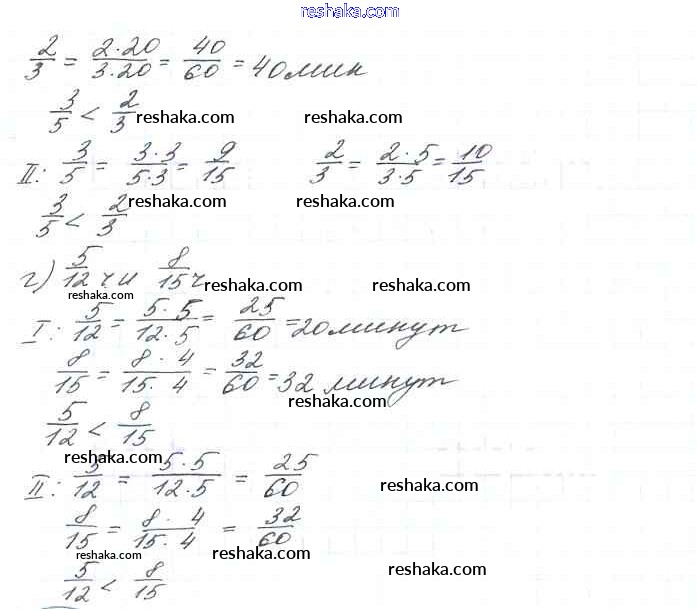 reshaka.com
2/3 = 2·20/3·20 = 40/60 = 40 мин
3/5 < 2/3
reshaka.com reshaka.com
II: 3/5 = 3·3/5·3 = 9/15 2/3 = 2·5/3·5 = 10/15
3/5 < 2/3
reshaka.com reshaka.com
г) 5/12 ч и 8/15 ч
reshaka.com reshaka.com reshaka.com
I: 5/12 = 5·5/12·5 = 25/60 = 20 минут
8/15 = 8·4/15·4 = 32/60 = 32 минут
reshaka.com
5/12 < 8/15
reshaka.com
II: 5/12 = 5·5/12·5 = 25/60
reshaka.com
8/15 = 8·4/15·4 = 32/60
reshaka.com reshaka.com
5/12 < 8/15
reshaka.com